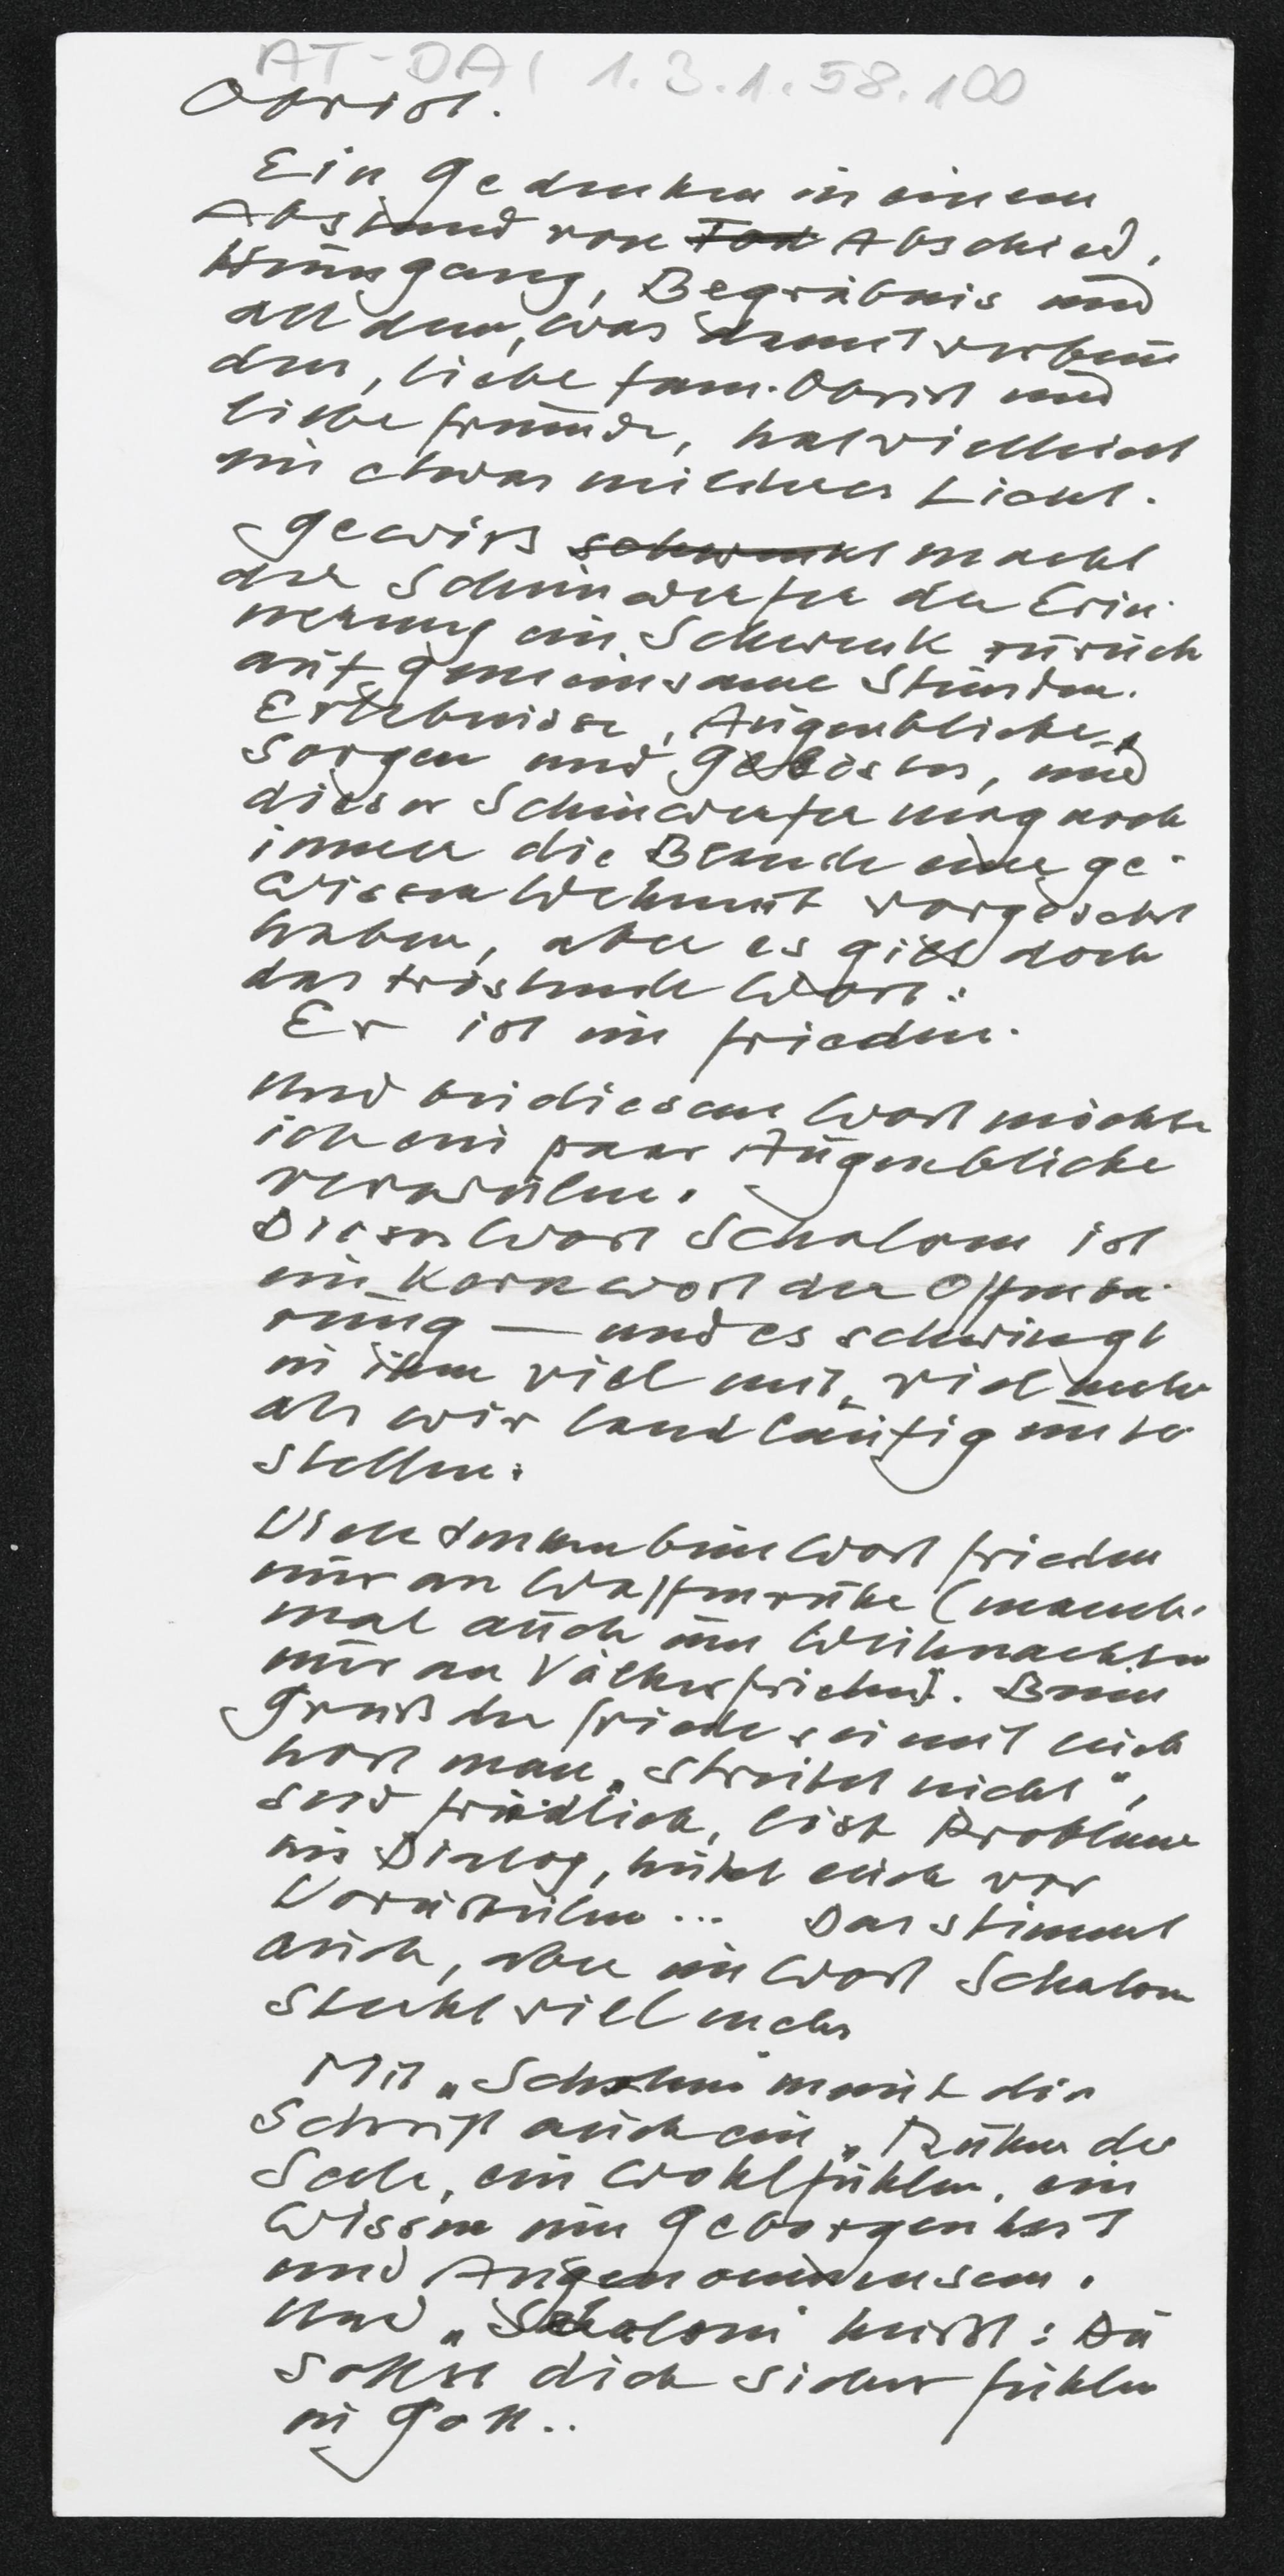 AT-DAI 1.3.1.58.100
Obrist.
Ein Gedenken in einem
Abstand von Tod Abschied,
Heimgang, Begräbnis und
all dem, was damit verbun
den, liebe Fam. Obrist und
liebe Freunde, hat vielleicht
ein etwas milderes Licht.
Gewiß schwenkt macht
der Scheinwerfer der Erin-
nerung ein Schwenk zurück
auf gemeinsame Stunden.
Erlebnisse, Augenblicke,
Sorgen und Gelöstes, und
dieser Scheinwerfer mag noch
immer die Blende einer ge-
wissen Wehmut vorgesetzt
haben, aber es gilt doch
das tröstende Wort:
Er ist im Frieden.
Und bei diesem Wort möchte
ich ein paar Augenblicke
verweilen.
Dieses Wort Schalom ist
ein Kernwort der Offenba-
rung — und es schwingt
in ihm viel mit, viel mehr
als wir landläufig unter
stellen.
Viele denken beim Wort Frieden
nur an Waffenruhe (manch-
mal auch um Weihnachten
nur an Völkerfrieden). Beim
Gruß der Friede sei mit euch
hört man „Streitet nicht",
seid friedlich, löst Probleme
im Dialog, hütet euch vor
Vorurteilen ... Das stimmt
auch, aber im Wort Schalom
steckt viel mehr
Mit „Schalom" meint die
Schrift auch ein „Ruhen der
Seele, ein Wohlfühlen, ein
Wissen um Geborgenheit
und Angenommensein.
Und „Schalom" heißt: Du
sollst dich sicher fühlen
in Gott..